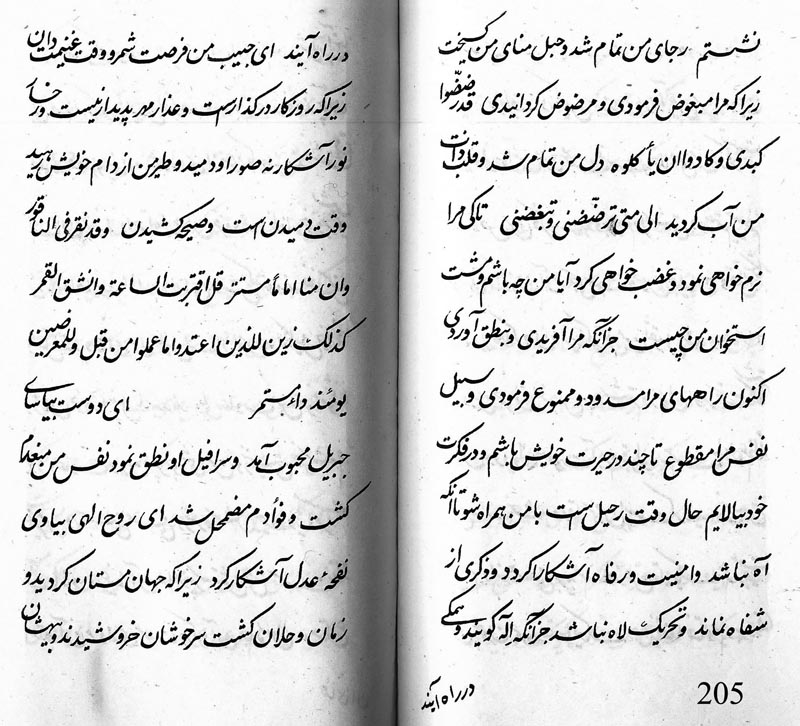 نشستم رجای من تمام شد و حبل منای من گسیخت
زیرا که مرا مبغوض فرمودی و مرضوض گردانیدی قد رضّضوا
کبدی و کادوا ان یأکلوه دل من تمام شد و قلب و ذات
من آب گردید الی متی ترضّضنی و تبغضنی تا کی مرا
نرم خواهی نمود و غضب خواهی کرد آیا من چه باشم و مشت
استخوان من چیست جز آنکه مرا آفریدی و بنطق آوردی
اکنون راههای مرا مسدود و ممنوع فرمودی و سبیل
نفس مرا مقطوع تا چند در حیرت خویش باشم و در فکرت
خود بیالایم حال وقت رحیل است با من همراه شو تا آنکه
آه نباشد و امنیت و رفاه آشکارا گردد و ذکری از
شفاه نماند و تحریک لاه نباشد جز آنکه اله گویند و همگی
در راه آیند
205
در راه آیند ای حبیب من فرصت شمر و وقت غنیمت دان
زیرا که روزگار در گذار است و عذار مهر پدیدار نیست و رخسار
نور آشکار نه صور او دمید و طیر من از دام خویش رهید
وقت دمیدن است و صیحه کشیدن و قد نقر فی الناقور
وان منا اما مستتر قل اقتربت الساعة وانشق القمر
کذلک زین للذین اعتدوا ما عملوا من قبل و للمعرضین
یومئذ دائر مستمر ای دوست بیاسای
جبریل محبوب آمد و سرافیل او نطق نمود نفس من منعدم
گشت و فوأدم مضمحل شد ای روح الهی بیا وی
نفحهٔ عدل آشکار کرد زیرا که جهان مستان گردید و
زمان و حلان گشت سرخوشان خروشیدند و بیهشان